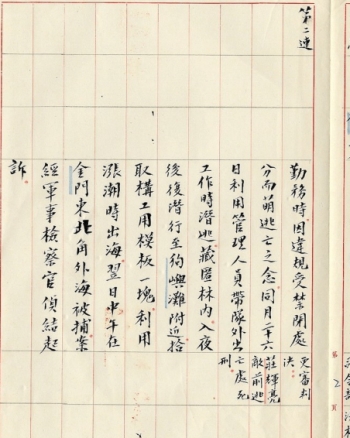 第二連
勤務時因違規受禁閉處
分而萌逃亡之念同月二十六
日利用管理人員帶隊外出
工作時潛逃藏匿林內入夜
後復潛行至約嶼灘附近拾
取構工用模板一塊利用
漲潮時出海翌日中午在
金門東北角外海被捕案
經軍事檢察官偵結起
訴
更審判
決
莊輝亮
敵前逃
亡處死
刑